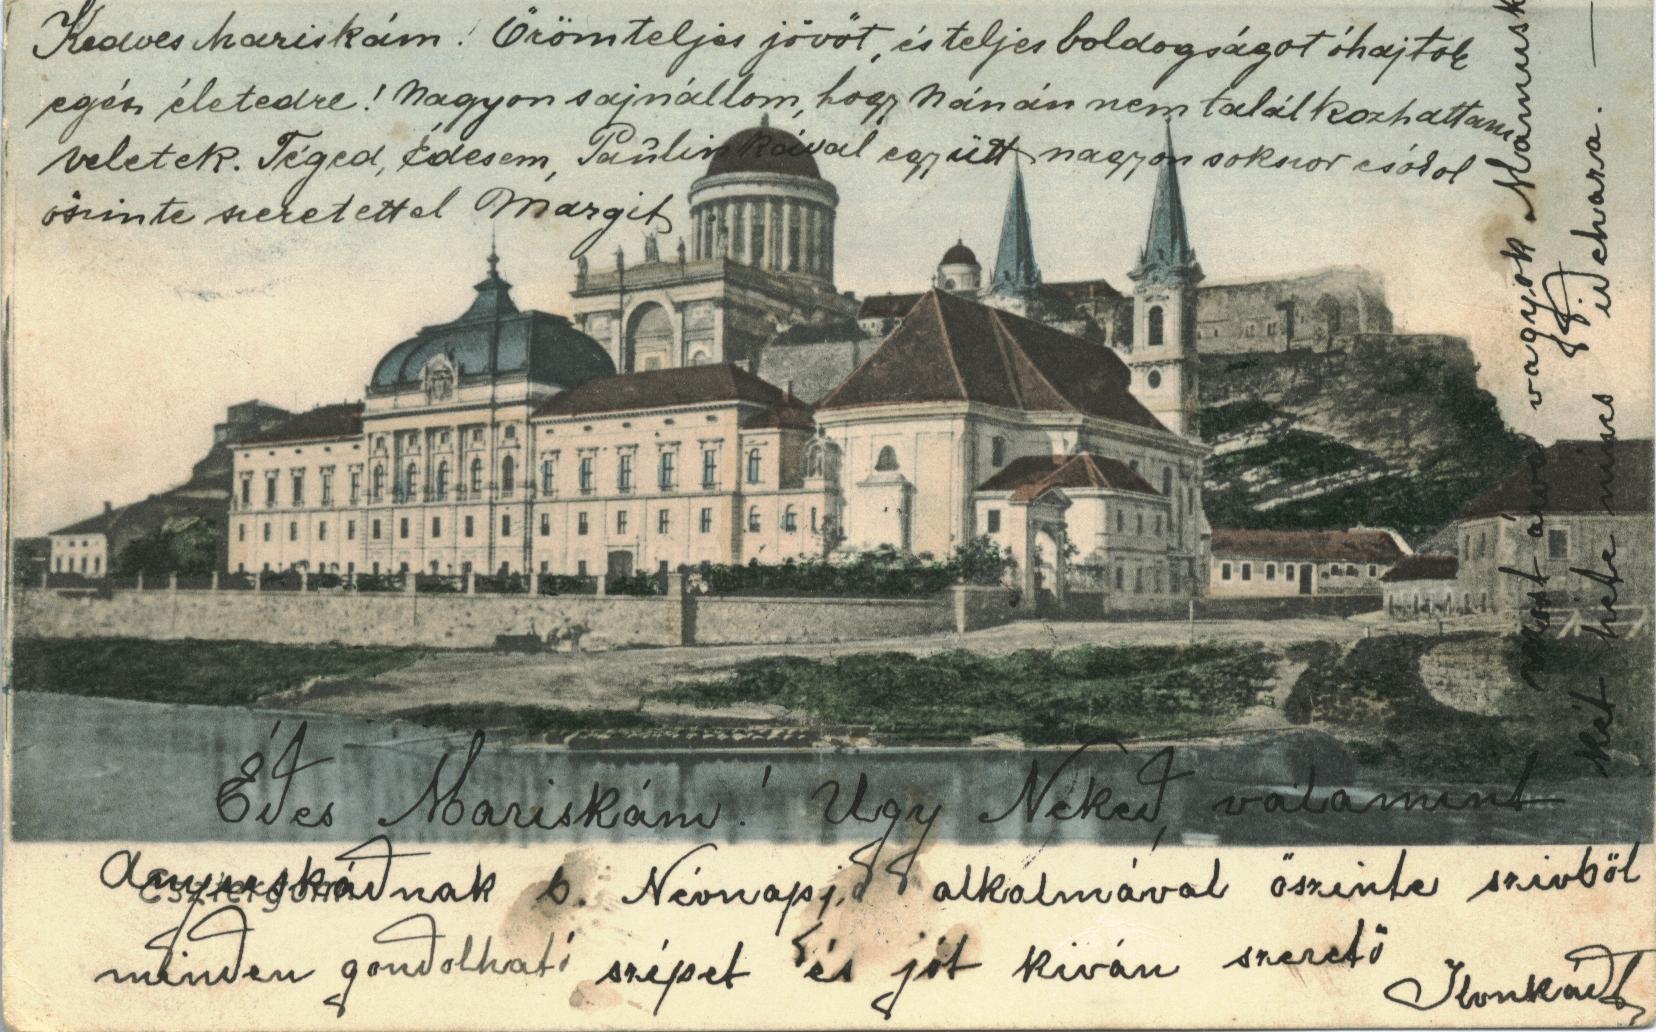 Kedves Mariskám! Örömteljes jövőt, és teljes boldogságot óhajtok
egész életedre! Nagyon sajnállom, hogy Nánán nem találkozhattam
veletek. Téged, Édesem, Paulinkával együtt nagyon sokszor csókol
őszinte szeretettel Margit
Édes Mariskám! Ugy Neked, valamint
Anyuskádnak b. Névnapjá alkalmával őszinte szivből
minden gondolható szépet és jót kiván szerető
Ilonkád
Esztergom
vagyok
két hete nincs